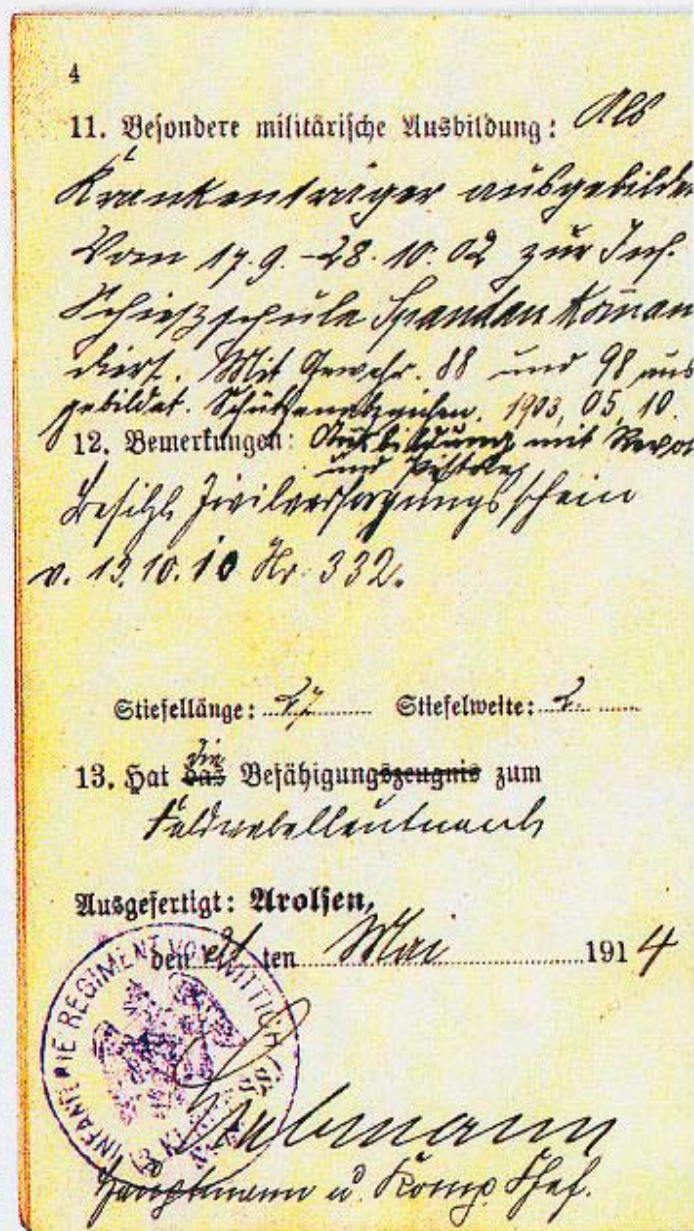 4
11. Besondere militärische Ausbildung: Als
Krankenträger ausgebilde
Vom 17.9.-28.10.02 zur Inf.
Schießschule Spandau Koman
diert. Mit Gewehr. 88 und 98 aus
gebildet. Schützenabzeichen. 1903, 05, 10.
12. Bemerkungen: Ausbildung mit Revol
und Pistole
Besitzt Zivilversorgungsschein
v. 13.10.10 Nr. 332.
Stiefellänge: 27 Stiefelweite: 2.
die
13. Hat das Befähigungszeugnis zum
Feldwebelleutnant
Ausgefertigt: Arolsen,
den ten Mai 1914
INFANTERIE REGIMENT VON WITTICH
Hauptmann u. Komp. Chef.